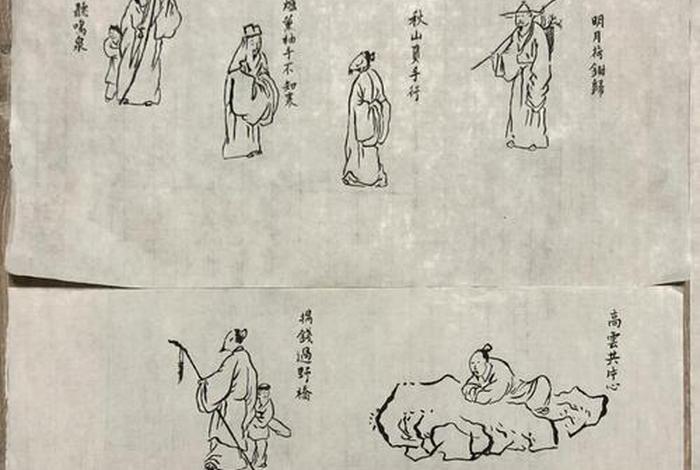 明月荷鉏歸
秋山負手行
爐薰袖手不知寒
聽鳴泉
高雲共片心
攜錢過野橋